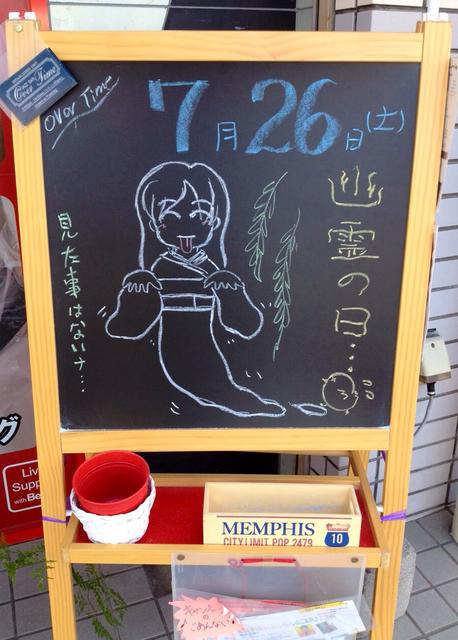 Over Time
Over Time
7月26日(土)
幽霊の日...
見た事はないナ...
グ
Liv
Supp
with Be
MEMPHIS
CITY LIMIT POP 2479
10
ごめんなさい